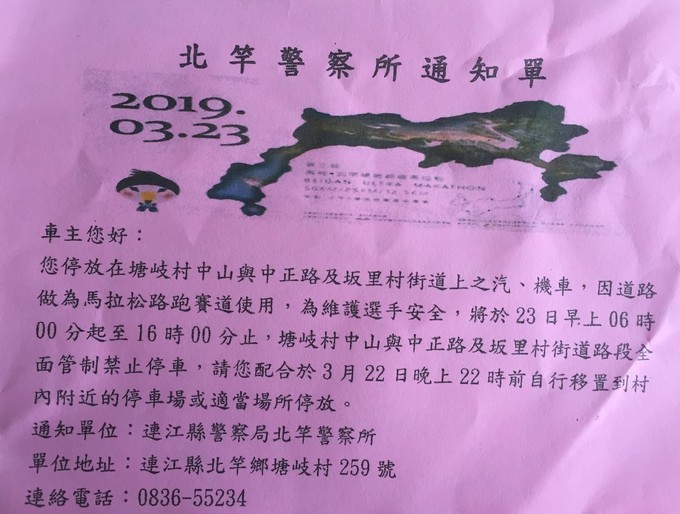 北竿警察所通知單
2019.
03.23
BEIGAN ULTRA MARATHON
車主您好：
您停放在塘岐村中山與中正路及坂里村街道上之汽、機車，因道路
做為馬拉松路跑賽道使用，為維護選手安全，將於 23 日早上 06 時
00 分起至 16 時 00 分止，塘岐村中山與中正路及坂里村街道路段全
面管制禁止停車，請您配合於 3 月 22 日晚上 22 時前自行移置到村
內附近的停車場或適當場所停放。
通知單位：連江縣警察局北竿警察所
單位地址：連江縣北竿鄉塘岐村 259 號
連絡電話：0836-55234